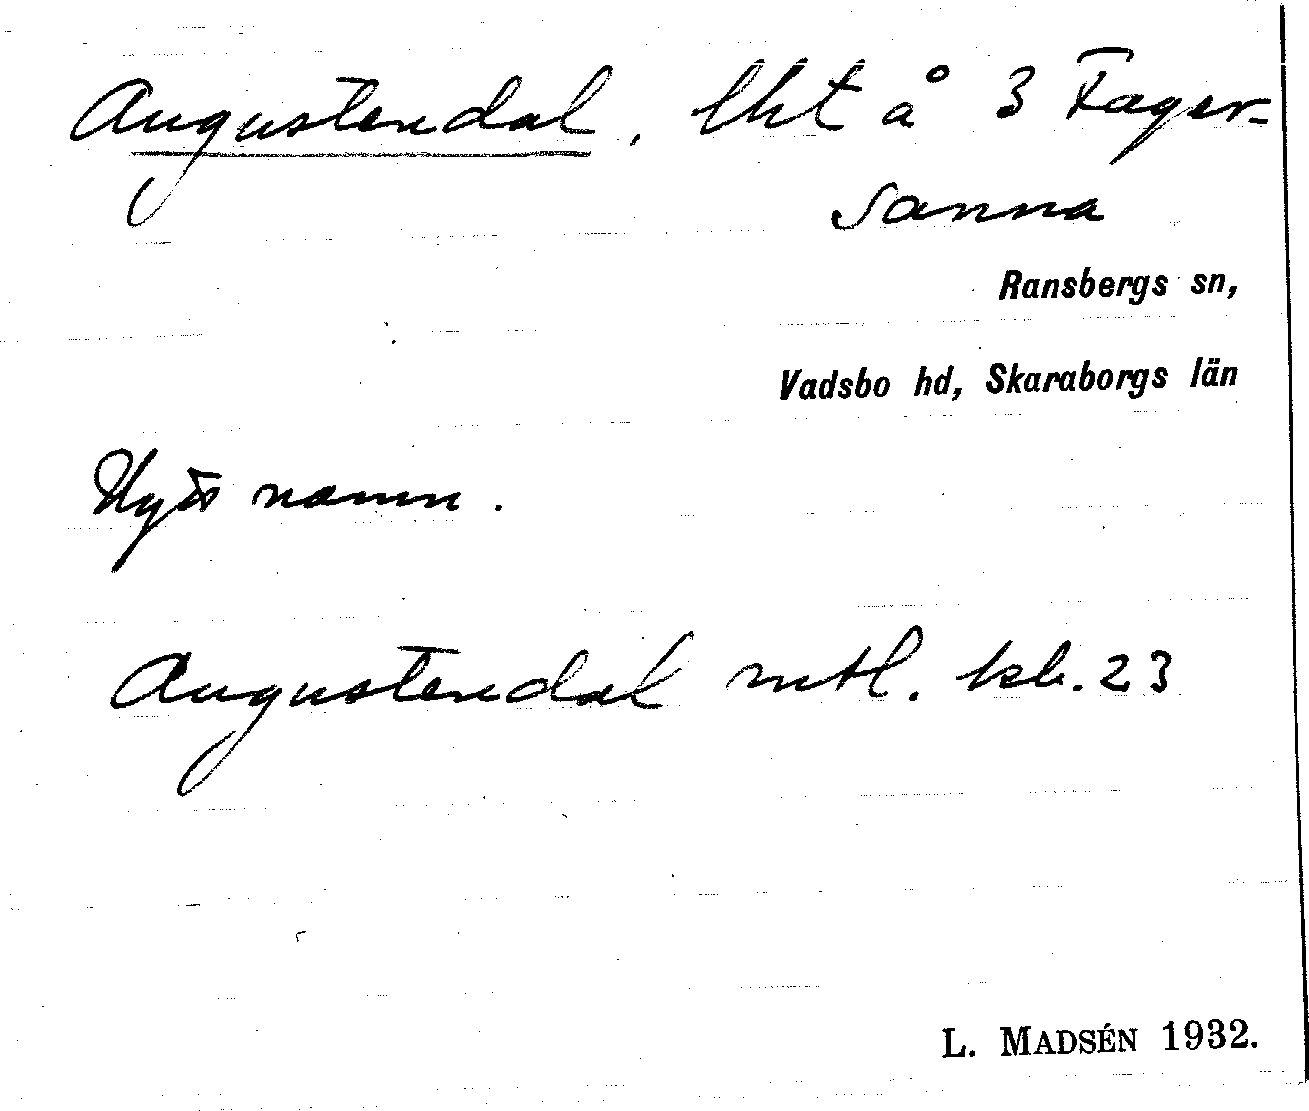 Augustendal, lht å 3 Fager-
sanna
Ransbergs sn,
Vadsbo hd, Skaraborgs län
Nytt namn.
Augustendal mtl. kb. 23
L. MADSÉN 1932.